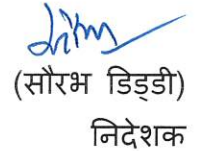 (सौरभ डिड्डी)
निदेशक